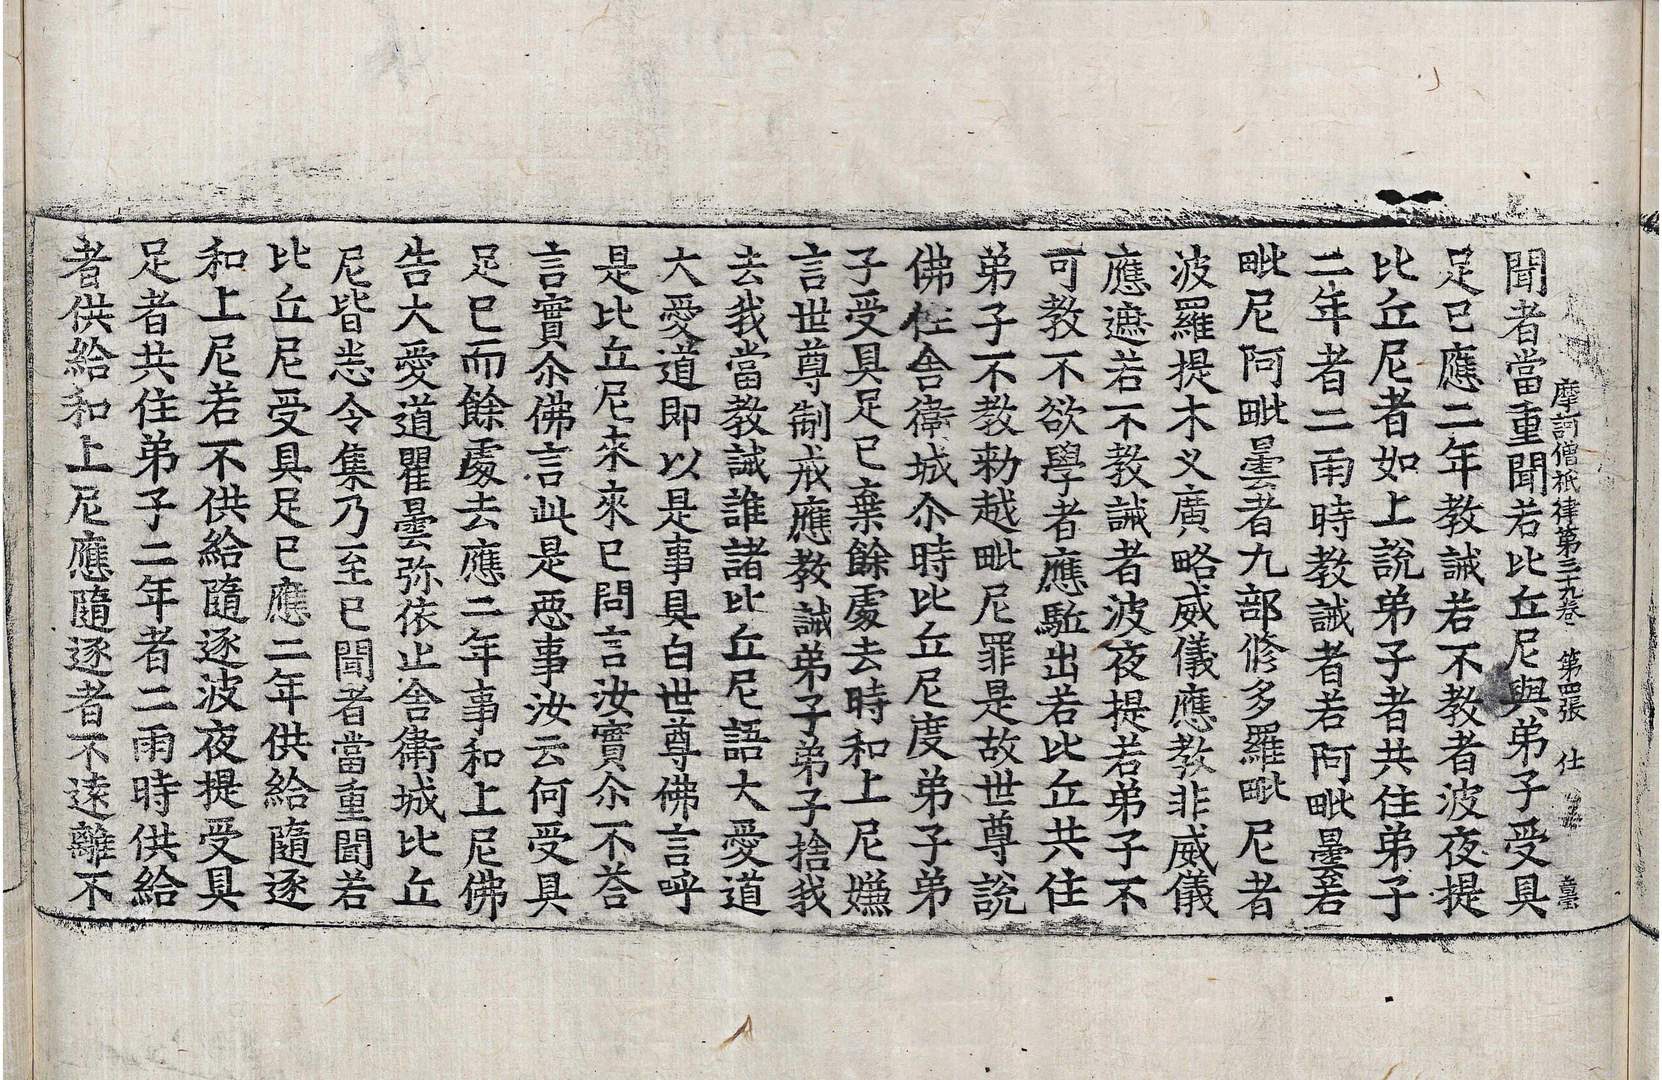 摩訶僧祇律第三十九卷 第四張 仕
聞者當重聞若比丘尼與弟子受具
足已應二年教誡若不教者波夜提
比丘尼者如上說弟子者共住弟子
二年者二雨時教誡者若阿毗曇若
毗尼阿毗曇者九部修多羅毗尼者
波羅提木义廣略威儀應教非威儀
應遮若不教誡者波夜提若弟子不
可教不欲學者應駈出若比丘共住
弟子不教勑越毗尼罪是故世尊說
佛住舎衛城尒時比丘尼度弟子弟
子受具足已棄餘處去時和上尼嫌
言世尊制戒應教誡弟子弟子捨我
去我當教誡誰諸比丘尼語大愛道
大愛道即以是事具白世尊佛言呼
是比丘尼來來已問言汝實尒不荅
言實尒佛言此是惡事汝云何受具
足已而餘處去應二年事和上尼佛
告大愛道瞿曇弥依止舎衛城比丘
尼皆悉令集乃至已聞者當重聞若
比丘尼受具足已應二年供給隨逐
和上尼若不供給隨逐波夜提受具
足者共住弟子二年者二雨時供給
者供給和上尼應隨逐者不遠離不